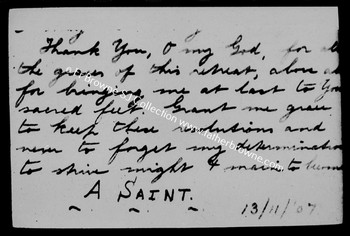 Thank You, O my God, for al
the graces of this retreat, above al
for bringing me at last to Your
sacred feet. Grant me grace
to keep these resolutions and
never to forget my determination
to strive might & main to become
A SAINT.
13/11/07